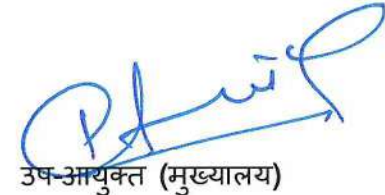 उप-आयुक्त (मुख्यालय)